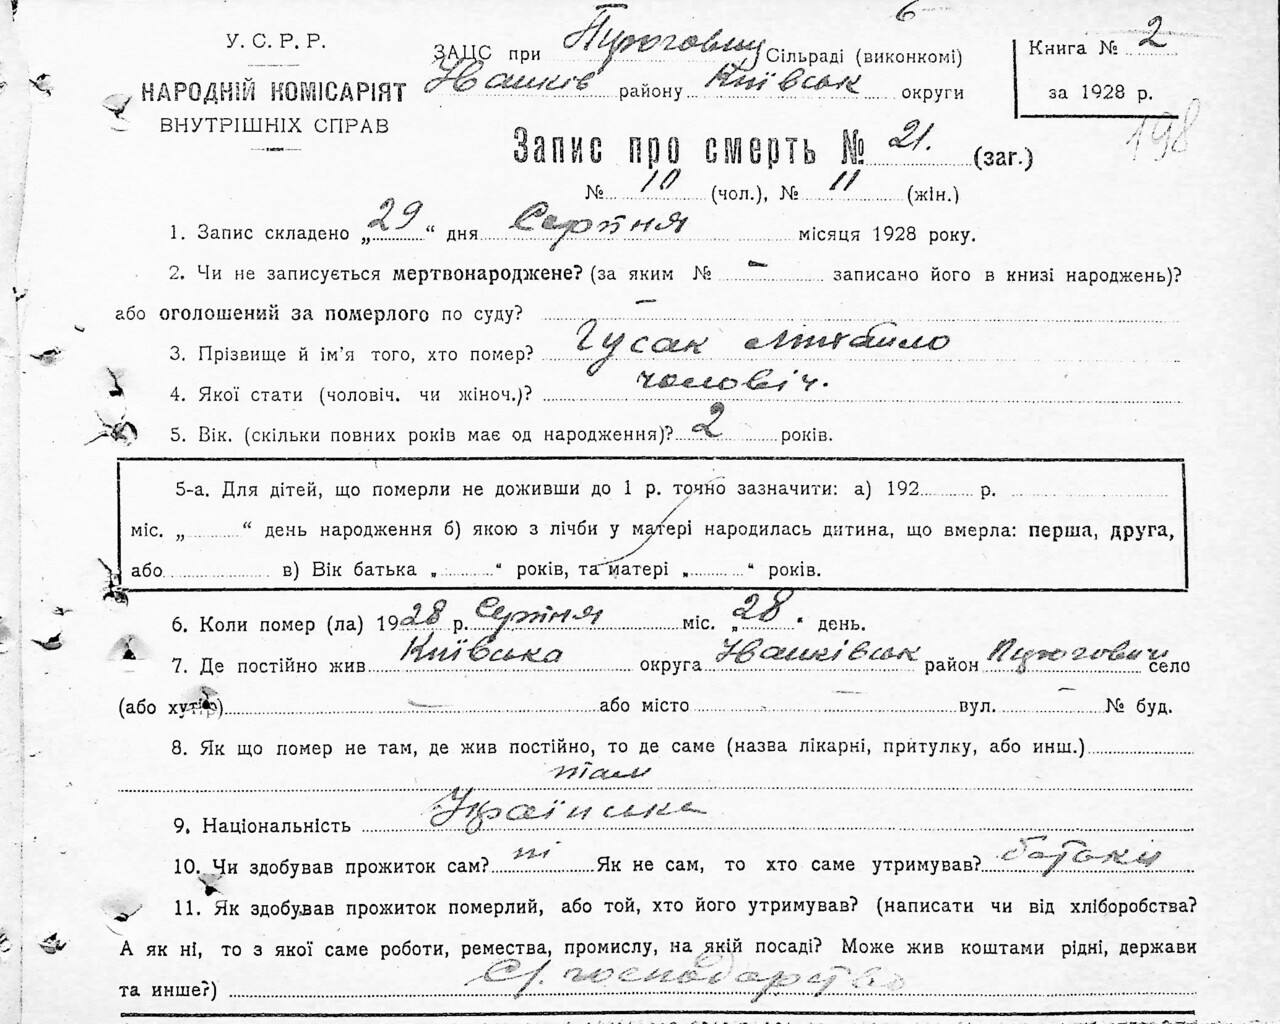 6
У. С. Р. Р.
НАРОДНІЙ КОМІСАРІЯТ
ВНУТРІШНІХ СПРАВ
ЗАЦС при Сільраді (виконкомі)
Іванків району Київськ округи
Книга № 2
за 1928 р.
198
Запис про смерть № 21. (заг.)
№ 10 (чол.), № 11 (жін.)
1. Запис складено „29“ дня Серпня місяця 1928 року.
2. Чи не записується мертвонароджене? (за яким № – записано його в книзі народжень)?
або оголошений за померлого по суду? –
3. Прізвище й ім’я того, хто помер? Гусак Михайло
4. Якої стати (чоловіч. чи жіноч.)? чоловіч.
5. Вік. (скільки повних років має од народження)? 2 років.
5-а. Для дітей, що померли не доживши до 1 р. точно зазначити: а) 192 р.
міс. „ “ день народження б) якою з лічби у матері народилась дитина, що вмерла: перша, друга,
або в) Вік батька „ “ років, та матері „ “ років.
6. Коли помер (ла) 1928 р. Серпня міс. „28“ день.
7. Де постійно жив Київська округа Іванківськ район село
(або хутір) – або місто – вул. – № буд.
8. Як що помер не там, де жив постійно, то де саме (назва лікарні, притулку, або инш.)
там
9. Національність Українська
10. Чи здобував прожиток сам? ні Як не сам, то хто саме утримував? батьки
11. Як здобував прожиток померлий, або той, хто його утримував? (написати чи від хліборобства?
А як ні, то з якої саме роботи, ремества, промислу, на якій посаді? Може жив коштами рідні, держави
та инше?) С/. господарство